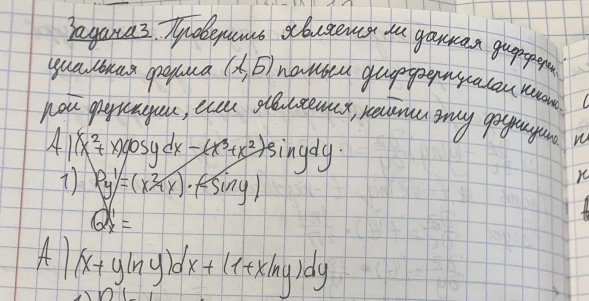 Задача 3. Проверить является ли данная дифферен-
циальная форма (А, Б) полным дифференциалом некото-
рой функции, если является, найти эту функцию
А) (x²+x)cosydx - (x³+x²)sinydy.
1) P'y = (x²+x)·(-siny)
Q'x =
А) (x+ylny)dx + (1+xlny)dy